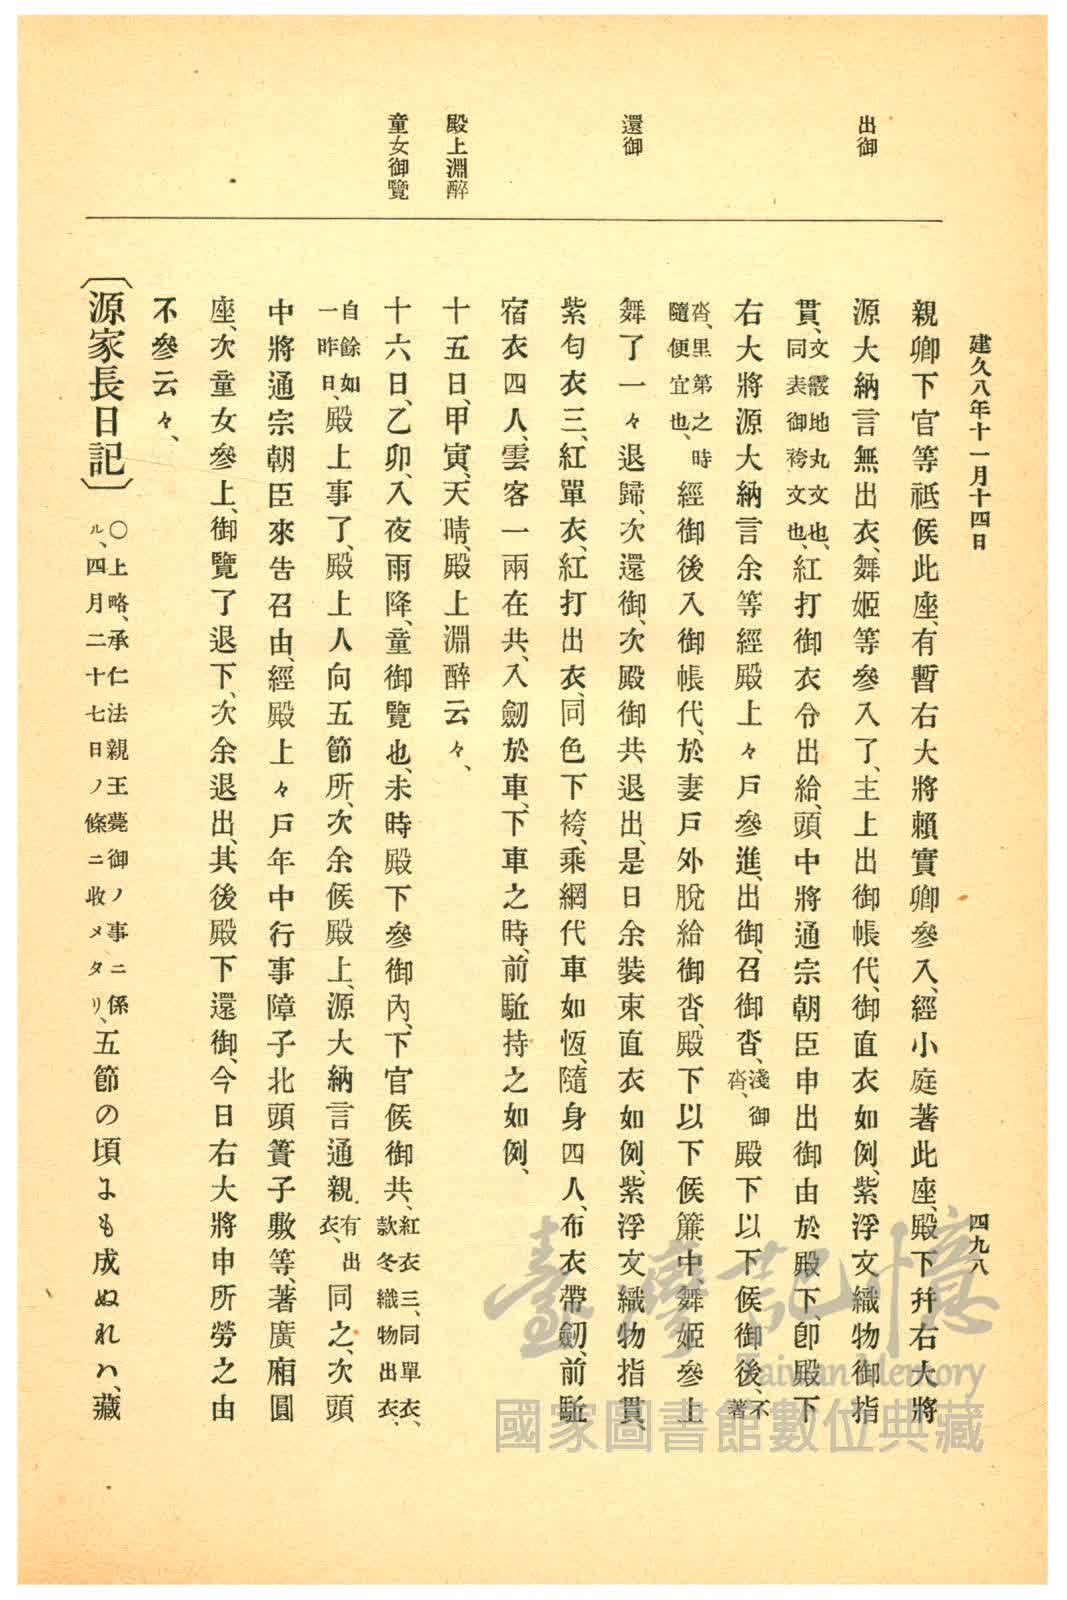 建久八年十一月十四日
四九八
出御
還御
殿上淵醉
童女御覽
親卿下官等祗候此座、有暫右大將賴實卿參入、經小庭著此座、殿下幷右大將
源大納言無出衣、舞姬等參入了、主上出御帳代、御直衣如例、紫浮文織物御指
貫、文霰地丸文也、同表御袴文也、紅打御衣令出給、頭中將通宗朝臣申出御由於殿下、卽殿下
右大將源大納言余等經殿上々戶參進、出御、召御沓、淺御沓、殿下以下候御後、不著
沓、里第之時隨便宜也、經御後入御帳代、於妻戶外脫給御沓、殿下以下候簾中、舞姬參上
舞了一々退歸、次還御、次殿御共退出、是日余裝束直衣如例、紫浮文織物指貫、
紫匂衣三、紅單衣、紅打出衣、同色下袴、乘網代車如恆、隨身四人、布衣帶劒、前駈
宿衣四人、雲客一兩在共、入劒於車、下車之時、前駈持之如例、
十五日、甲寅、天晴、殿上淵醉云々、
十六日、乙卯、入夜雨降、童御覽也、未時殿下參御內、下官候御共、紅衣三、同單衣、款冬織物出衣、
自餘如一昨日、殿上事了、殿上人向五節所、次余候殿上、源大納言通親、有出衣、同之、次頭
中將通宗朝臣來告召由、經殿上々戶年中行事障子北頭簀子敷等、著廣廂圓
座、次童女參上、御覽了退下、次余退出、其後殿下還御、今日右大將申所勞之由
不參云々、
〔源家長日記〕〇上略、承仁法親王薨御ノ事ニ係ル、四月二十七日ノ條ニ收メタリ、五節の頃にも成ぬれハ、藏
臺灣記憶
Taiwan Memory
國家圖書館數位典藏